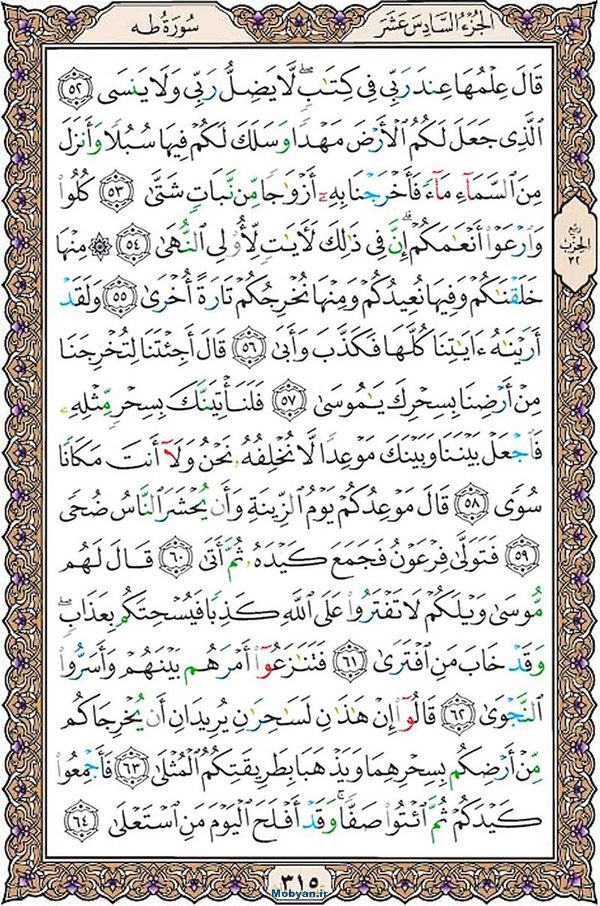 الجُزءُ السَّادِسَ عَشَرَ
سُورَةُ طه
قَالَ عِلْمُهَا عِندَ رَبِّي فِي كِتَٰبٍۖ لَّا يَضِلُّ رَبِّي وَلَا يَنسَى ٥٢
ٱلَّذِي جَعَلَ لَكُمُ ٱلْأَرْضَ مَهْدًا وَسَلَكَ لَكُمْ فِيهَا سُبُلًا وَأَنزَلَ
مِنَ ٱلسَّمَآءِ مَآءً فَأَخْرَجْنَا بِهِۦٓ أَزْوَٰجًا مِّن نَّبَاتٍ شَتَّىٰ ٥٣ كُلُوا۟
وَٱرْعَوْا۟ أَنْعَٰمَكُمْۗ إِنَّ فِي ذَٰلِكَ لَأٓيَٰتٍ لِّأُو۟لِي ٱلنُّهَىٰ ٥٤ ۞ مِنْهَا
رُبع
الحِزب
٣٢
خَلَقْنَٰكُمْ وَفِيهَا نُعِيدُكُمْ وَمِنْهَا نُخْرِجُكُمْ تَارَةً أُخْرَىٰ ٥٥ وَلَقَدْ
أَرَيْنَٰهُ ءَايَٰتِنَا كُلَّهَا فَكَذَّبَ وَأَبَىٰ ٥٦ قَالَ أَجِئْتَنَا لِتُخْرِجَنَا
مِنْ أَرْضِنَا بِسِحْرِكَ يَٰمُوسَىٰ ٥٧ فَلَنَأْتِيَنَّكَ بِسِحْرٍ مِّثْلِهِۦ
فَٱجْعَلْ بَيْنَنَا وَبَيْنَكَ مَوْعِدًا لَّا نُخْلِفُهُۥ نَحْنُ وَلَآ أَنتَ مَكَانًا
سُوًى ٥٨ قَالَ مَوْعِدُكُمْ يَوْمُ ٱلزِّينَةِ وَأَن يُحْشَرَ ٱلنَّاسُ ضُحًى
٥٩ فَتَوَلَّىٰ فِرْعَوْنُ فَجَمَعَ كَيْدَهُۥ ثُمَّ أَتَىٰ ٦٠ قَالَ لَهُم
مُّوسَىٰ وَيْلَكُمْ لَا تَفْتَرُوا۟ عَلَى ٱللَّهِ كَذِبًا فَيُسْحِتَكُم بِعَذَابٍۖ
وَقَدْ خَابَ مَنِ ٱفْتَرَىٰ ٦١ فَتَنَٰزَعُوٓا۟ أَمْرَهُم بَيْنَهُمْ وَأَسَرُّوا۟
ٱلنَّجْوَىٰ ٦٢ قَالُوٓا۟ إِنْ هَٰذَٰنِ لَسَٰحِرَٰنِ يُرِيدَانِ أَن يُخْرِجَاكُم
مِّنْ أَرْضِكُم بِسِحْرِهِمَا وَيَذْهَبَا بِطَرِيقَتِكُمُ ٱلْمُثْلَىٰ ٦٣ فَأَجْمِعُوا۟
كَيْدَكُمْ ثُمَّ ٱئْتُوا۟ صَفًّاۚ وَقَدْ أَفْلَحَ ٱلْيَوْمَ مَنِ ٱسْتَعْلَىٰ ٦٤
٣١٥
Mobyan.ir